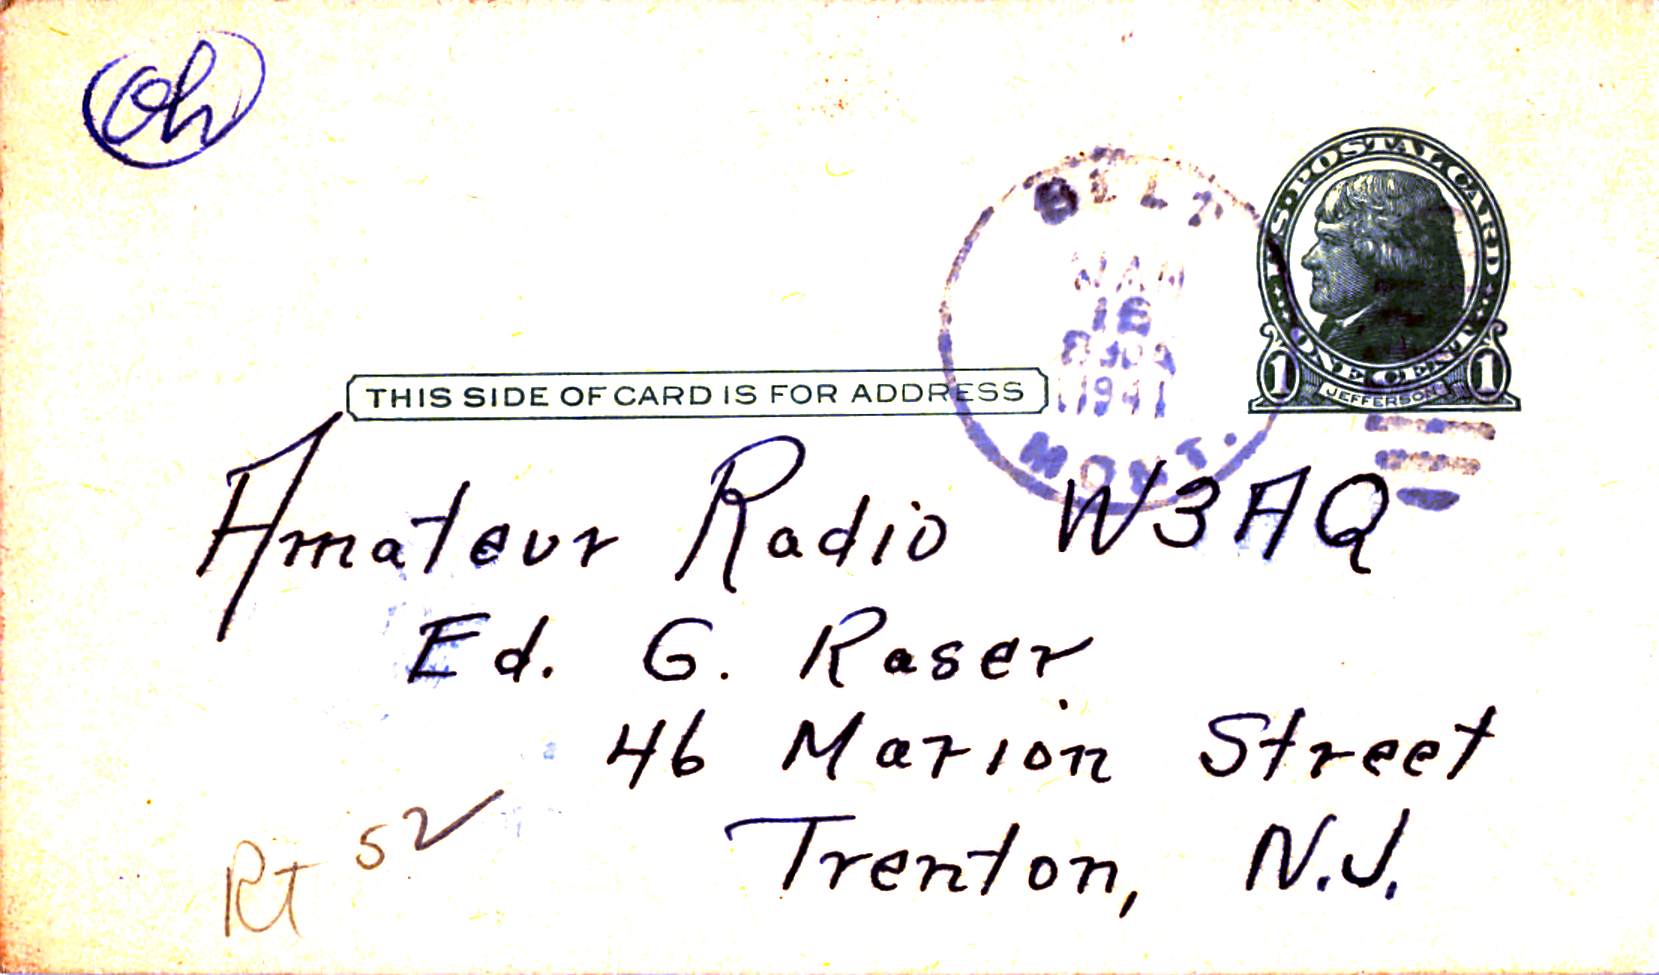 oh
U.S. POSTAL CARD
ONE CENT
1 JEFFERSON 1
BELT
1941
MONT.
THIS SIDE OF CARD IS FOR ADDRESS
Amateur Radio W3AQ
Ed. G. Raser
46 Marion Street
Trenton, N.J.
Rt 52